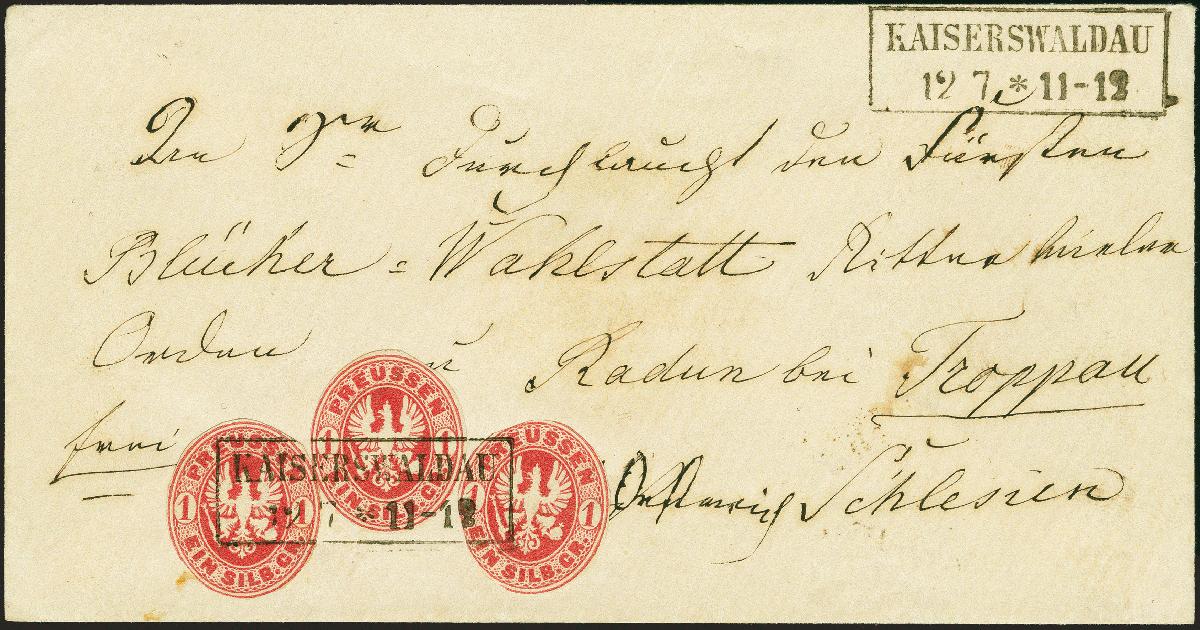 KAISERSWALDAU
12 7 * 11-12
Durchlaucht den Fürsten
Blücher = Wahlstatt Ritter vieler
Orden zu Radun bei Troppau
frei
Oesterreich Schlesien
PREUSSEN
1 1
EIN SILB. GR.
PREUSSEN
1 1
EIN SILB. GR.
PREUSSEN
1 1
EIN SILB. GR.
KAISERSWALDAU
12 7 * 11-12